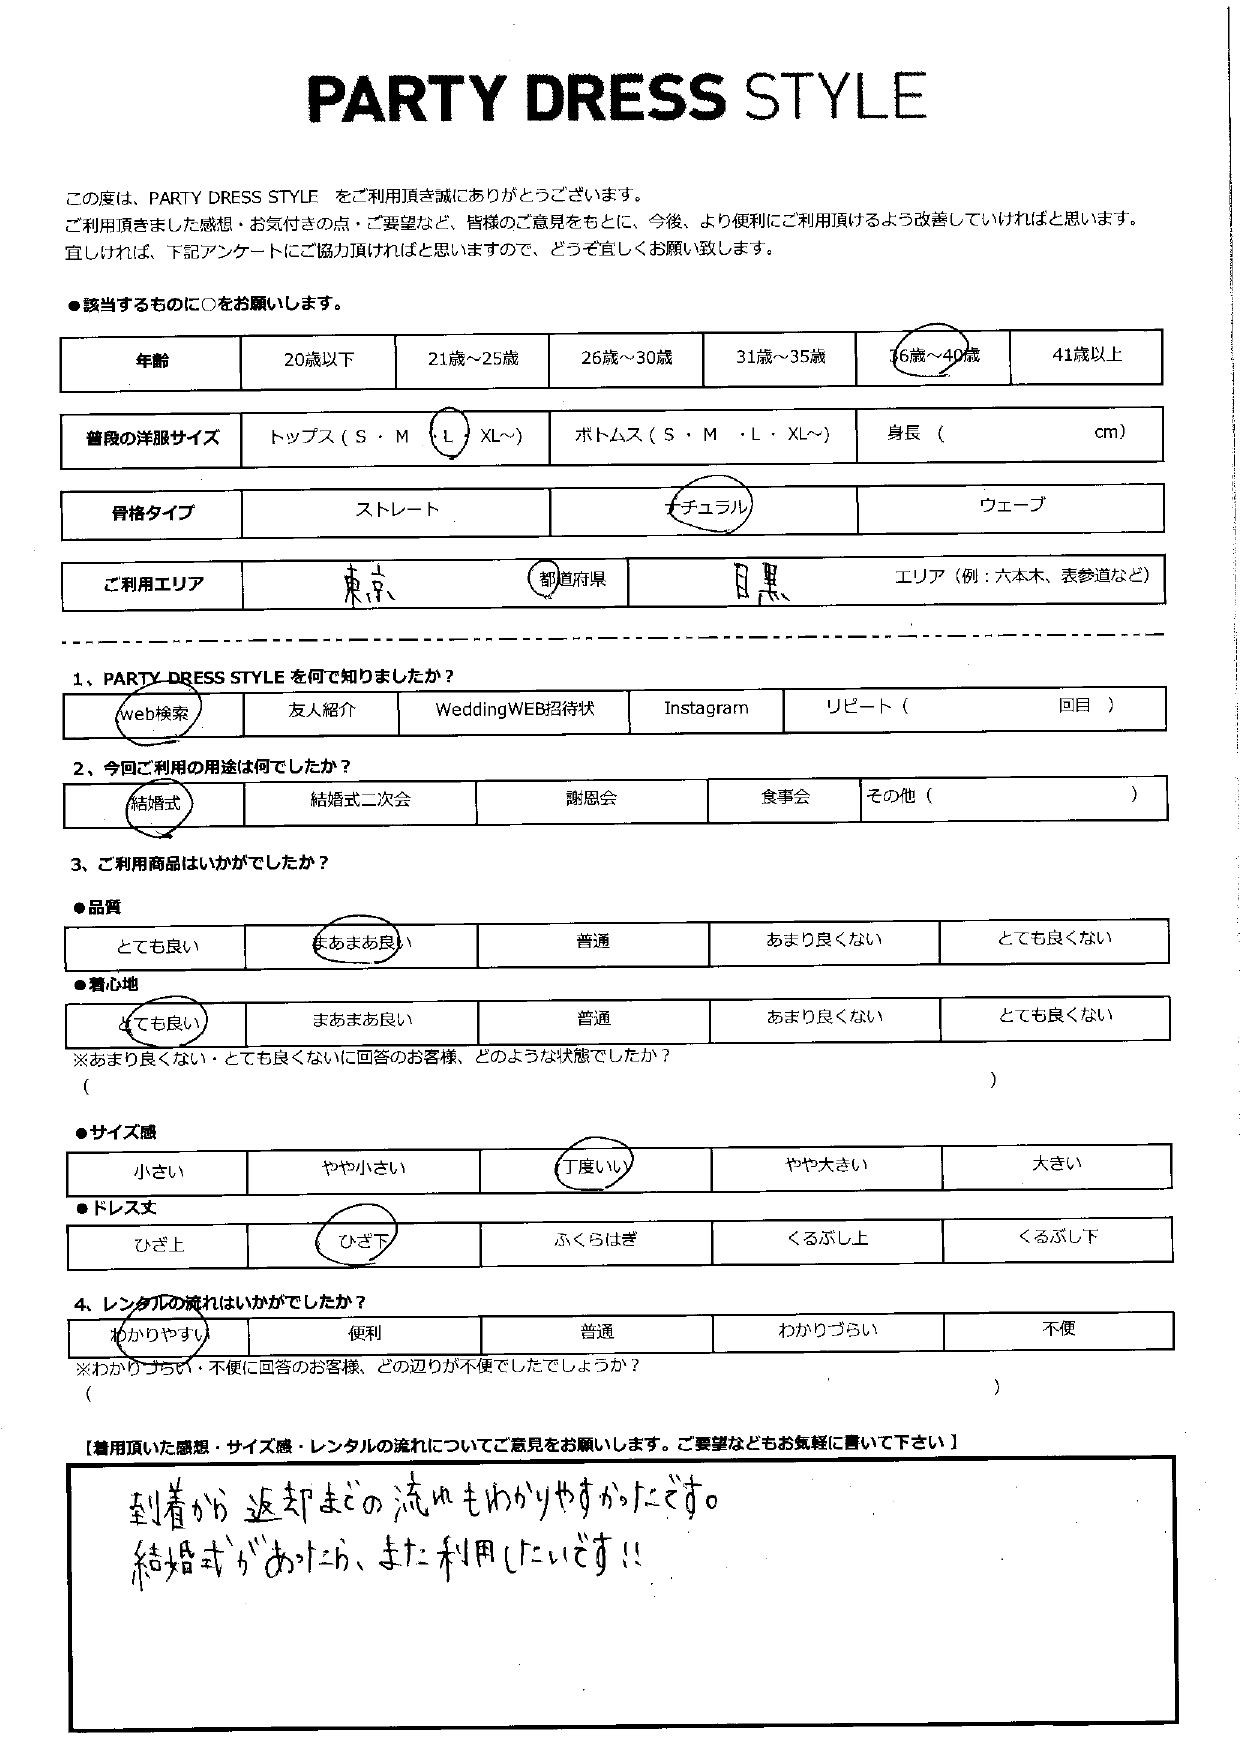 PARTY DRESS STYLE
この度は、PARTY DRESS STYLE をご利用頂き誠にありがとうございます。
ご利用頂きました感想・お気付きの点・ご要望など、皆様のご意見をもとに、今後、より便利にご利用頂けるよう改善していければと思います。
宜しければ、下記アンケートにご協力頂ければと思いますので、どうぞ宜しくお願い致します。
●該当するものに○をお願いします。
年齢 20歳以下 21歳～25歳 26歳～30歳 31歳～35歳 36歳～40歳 41歳以上
普段の洋服サイズ トップス（ S ・ M ・L・ XL～） ボトムス（ S ・ M ・L ・ XL～） 身長 （ cm）
骨格タイプ ストレート ナチュラル ウェーブ
ご利用エリア 東京 都道府県 目黒 エリア（例：六本木、表参道など）
1、PARTY DRESS STYLE を何で知りましたか？
web検索 友人紹介 WeddingWEB招待状 Instagram リピート（ 回目 ）
2、今回ご利用の用途は何でしたか？
結婚式 結婚式二次会 謝恩会 食事会 その他（ ）
3、ご利用商品はいかがでしたか？
●品質
とても良い まあまあ良い 普通 あまり良くない とても良くない
●着心地
とても良い まあまあ良い 普通 あまり良くない とても良くない
※あまり良くない・とても良くないに回答のお客様、どのような状態でしたか？
（ ）
●サイズ感
小さい やや小さい 丁度いい やや大きい 大きい
●ドレス丈
ひざ上 ひざ下 ふくらはぎ くるぶし上 くるぶし下
4、レンタルの流れはいかがでしたか？
わかりやすい 便利 普通 わかりづらい 不便
※わかりづらい・不便に回答のお客様、どの辺りが不便でしたでしょうか？
（ ）
【着用頂いた感想・サイズ感・レンタルの流れについてご意見をお願いします。ご要望などもお気軽に書いて下さい】
到着から返却までの流れもわかりやすかったです。
結婚式があったら、また利用したいです!!